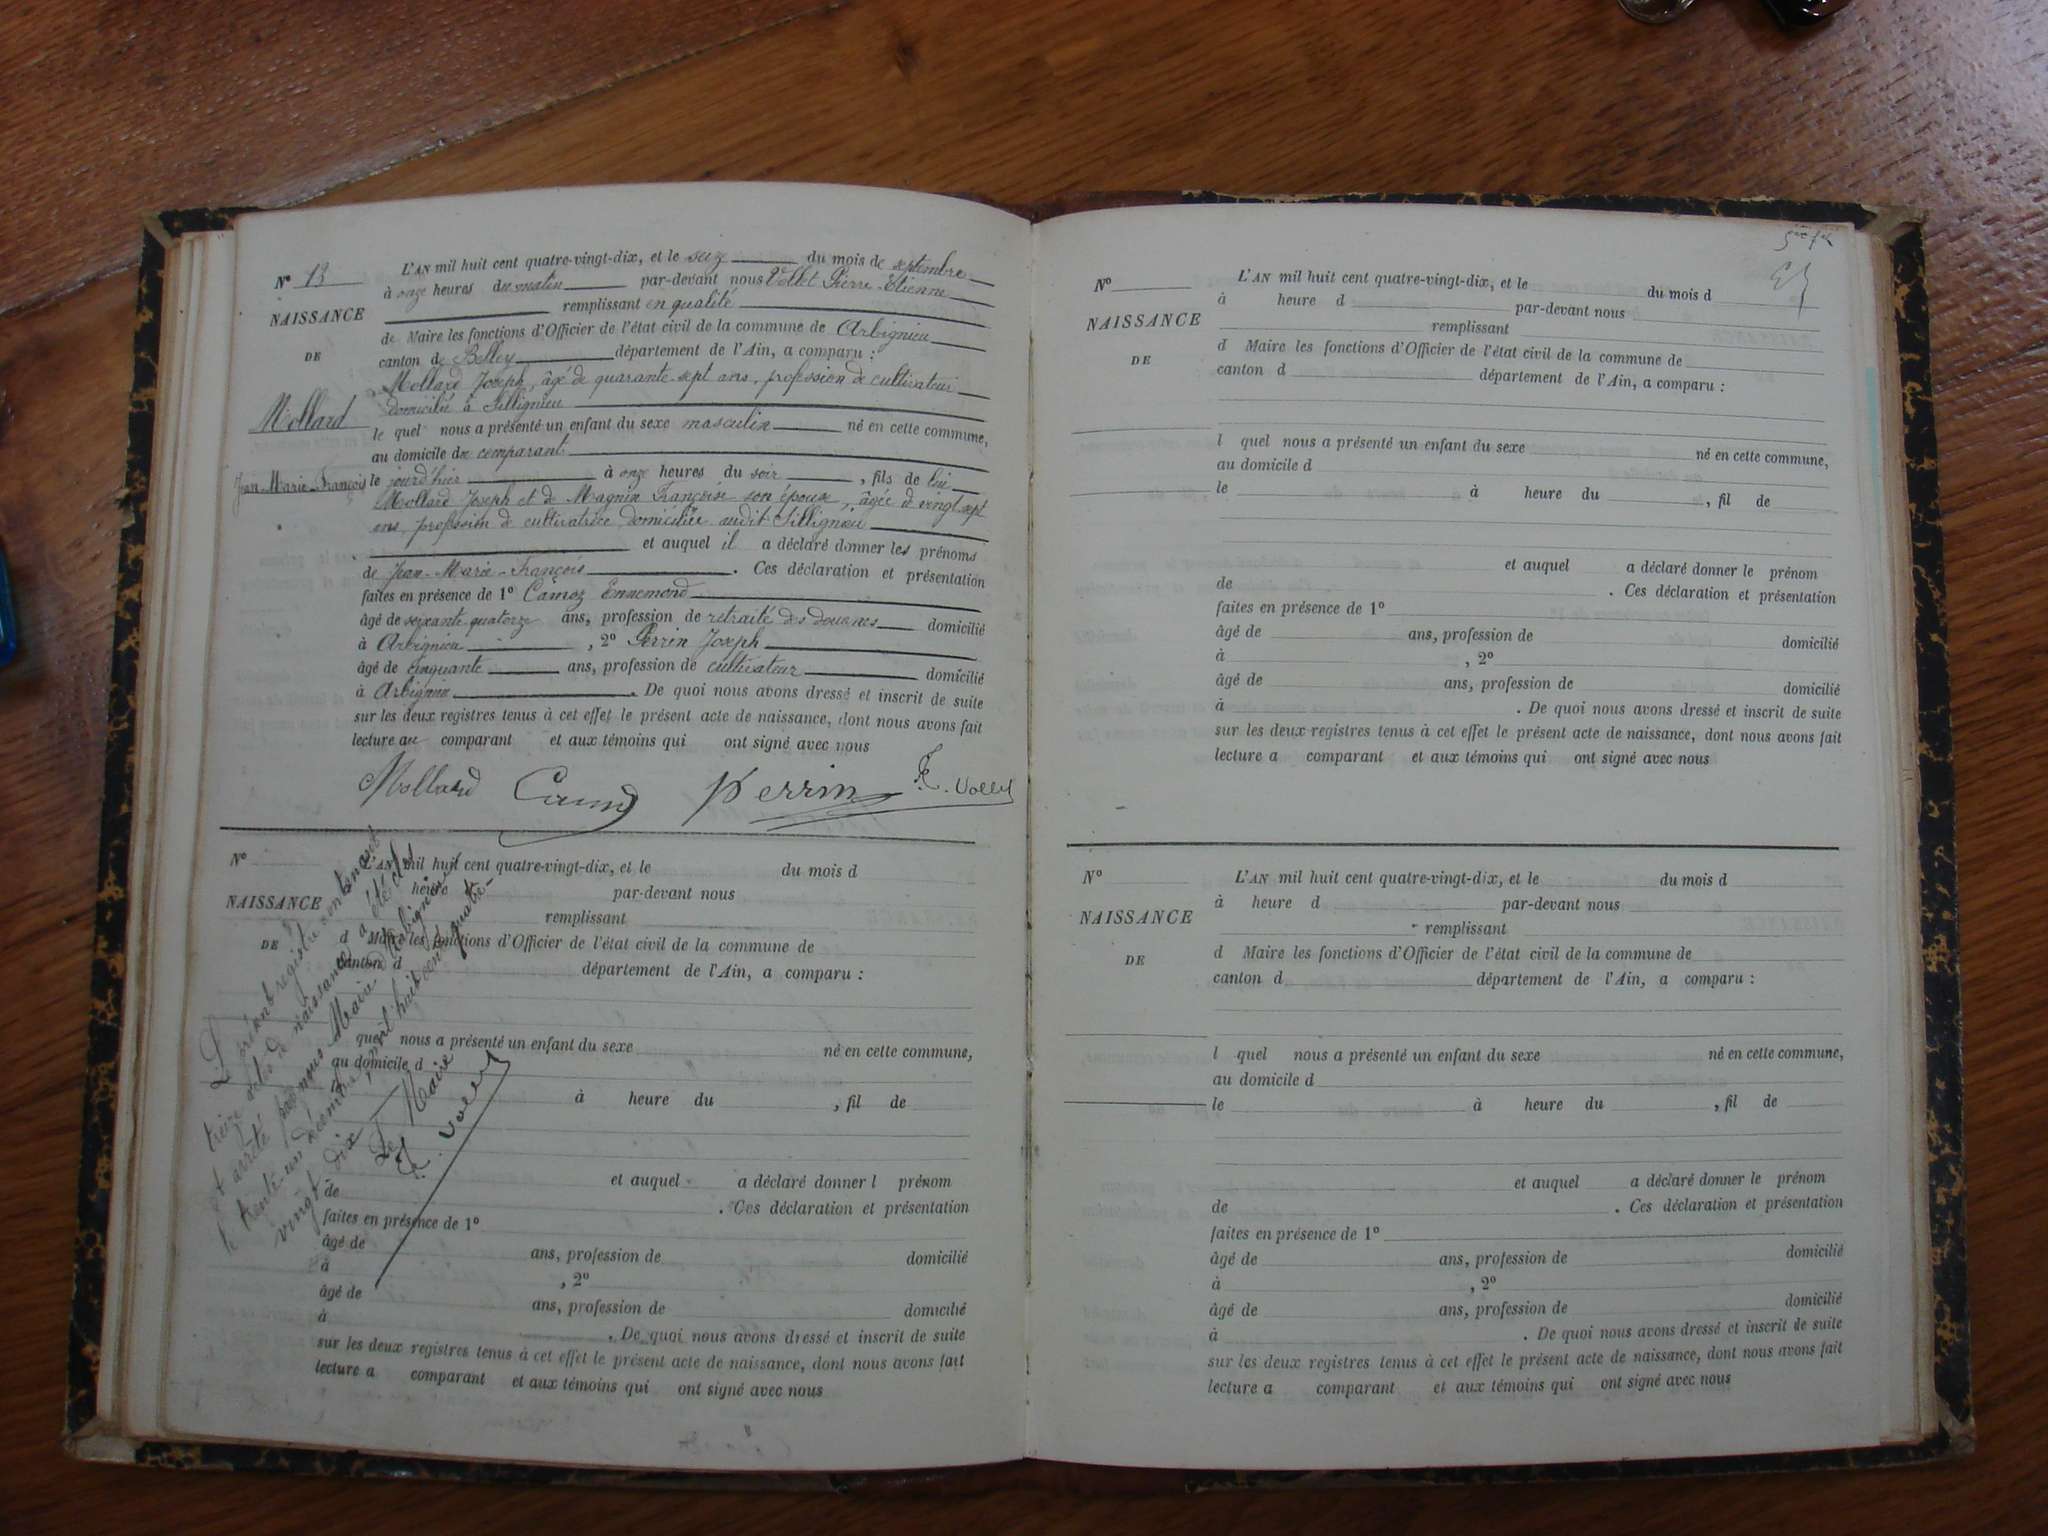 N° 13
NAISSANCE
DE
Mollard
Jean-Marie-François
L'AN mil huit cent quatre-vingt-dix, et le seiz du mois de septembre
à onze heures du matin par-devant nous Vollet Pierre-Etienne
remplissant en qualité
de Maire les fonctions d'Officier de l'état civil de la commune de Arbignieu
canton de Belley département de l'Ain, a comparu :
Mollard Joseph, âgé de quarante-sept ans, profession de cultivateur
domicilié à Sillignieu
le quel nous a présenté un enfant du sexe masculin né en cette commune,
au domicile du comparant
le jourd'hier à onze heures du soir, fils de lui
Mollard Joseph et de Magnin Françoise son épouse, âgée de vingt-sept
ans, profession de cultivatrice domiciliée audit Sillignieu
et auquel il a déclaré donner les prénoms
de Jean-Marie-François. Ces déclaration et présentation
faites en présence de 1° Camoz Ennemond
âgé de soixante quatorze ans, profession de retraité des douanes domicilié
à Arbignieu, 2° Perrin Joseph
âgé de cinquante ans, profession de cultivateur domicilié
à Arbignieu. De quoi nous avons dressé et inscrit de suite
sur les deux registres tenus à cet effet le présent acte de naissance, dont nous avons fait
lecture au comparant et aux témoins qui ont signé avec nous
Mollard Perrin
N°
NAISSANCE
DE
L'AN mil huit cent quatre-vingt-dix, et le du mois d
heure par-devant nous
remplissant
d Maire les fonctions d'Officier de l'état civil de la commune de
canton d département de l'Ain, a comparu :
quel nous a présenté un enfant du sexe né en cette commune,
au domicile d
à heure du , fil de
et auquel a déclaré donner l prénom
de . Ces déclaration et présentation
faites en présence de 1°
âgé de ans, profession de domicilié
à , 2°
âgé de ans, profession de domicilié
à . De quoi nous avons dressé et inscrit de suite
sur les deux registres tenus à cet effet le présent acte de naissance, dont nous avons fait
lecture a comparant et aux témoins qui ont signé avec nous
Le présent registre contenant
treize actes de naissance a été clos
et arrêté par nous Maire d'Arbignieu
le trente-un décembre mil huit cent quatre-
vingt dix
Le Maire
N°
NAISSANCE
DE
L'AN mil huit cent quatre-vingt-dix, et le du mois d
à heure d par-devant nous
remplissant
d Maire les fonctions d'Officier de l'état civil de la commune de
canton d département de l'Ain, a comparu :
l quel nous a présenté un enfant du sexe né en cette commune,
au domicile d
le à heure du , fil de
et auquel a déclaré donner le prénom
de . Ces déclaration et présentation
faites en présence de 1°
âgé de ans, profession de domicilié
à , 2°
âgé de ans, profession de domicilié
à . De quoi nous avons dressé et inscrit de suite
sur les deux registres tenus à cet effet le présent acte de naissance, dont nous avons fait
lecture a comparant et aux témoins qui ont signé avec nous
N°
NAISSANCE
DE
L'AN mil huit cent quatre-vingt-dix, et le du mois d
à heure d par-devant nous
remplissant
d Maire les fonctions d'Officier de l'état civil de la commune de
canton d département de l'Ain, a comparu :
l quel nous a présenté un enfant du sexe né en cette commune,
au domicile d
le à heure du , fil de
et auquel a déclaré donner le prénom
de . Ces déclaration et présentation
faites en présence de 1°
âgé de ans, profession de domicilié
à , 2°
âgé de ans, profession de domicilié
à . De quoi nous avons dressé et inscrit de suite
sur les deux registres tenus à cet effet le présent acte de naissance, dont nous avons fait
lecture a comparant et aux témoins qui ont signé avec nous